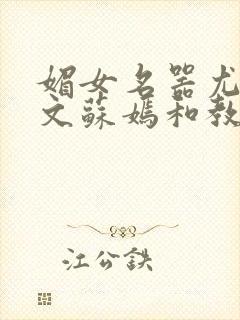 媚女名器尤
文蘇媽和教
江公鉄